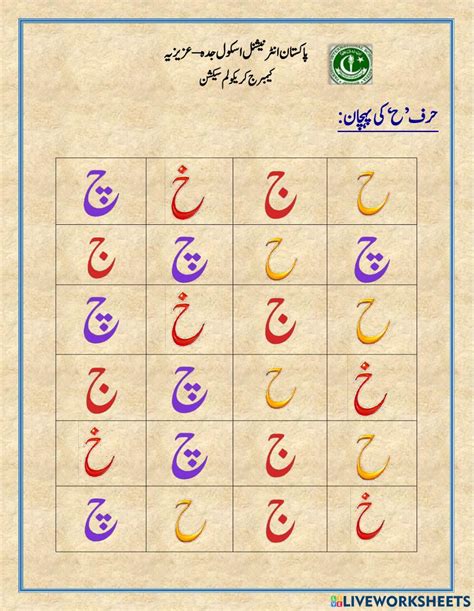 پاکستان انٹرنیشنل اسکول جدہ – عزیزیہ
کیمبرج کریکولم سیکشن
حرف ’ح‘ کی پہچان:
ح ج خ چ
چ ح چ ج
ح ج خ چ
خ ح چ ج
ح ج چ خ
خ ج ح چ
LIVEWORKSHEETS